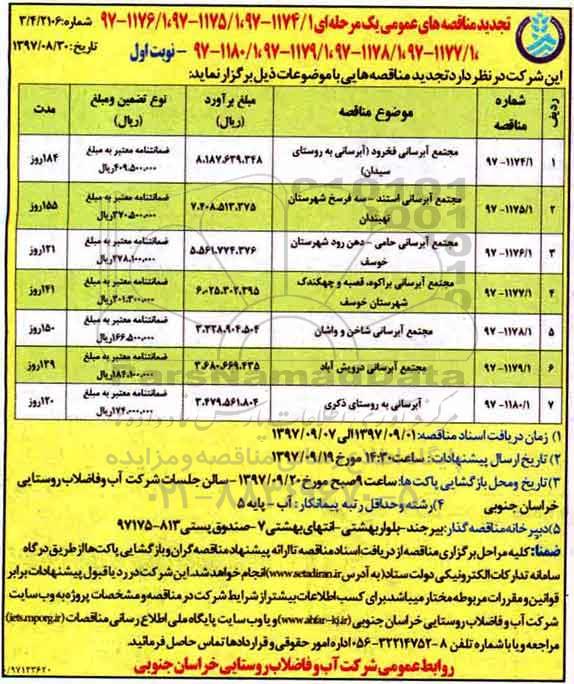 تجدید مناقصه های عمومی یک مرحله ای ۹۷-۱۱۷۶/۱،۹۷-۱۱۷۵/۱،۹۷-۱۱۷۴/۱
۹۷-۱۱۸۰/۱،۹۷-۱۱۷۹/۱،۹۷-۱۱۷۸/۱،۹۷-۱۱۷۷/۱، - نوبت اول
شماره:۳/۴/۲۱۰۶
تاریخ:۱۳۹۷/۰۸/۳۰
این شرکت در نظر دارد تجدید مناقصه هایی با موضوعات ذیل برگزار نماید:
ردیف شماره مناقصه موضوع مناقصه مبلغ برآورد (ریال) نوع تضمین ومبلغ (ریال) مدت
۱ ۹۷-۱۱۷۴/۱ مجتمع آبرسانی فخرود (آبرسانی به روستای سیدان) ۸.۱۸۷.۶۳۹.۳۴۸ ضمانتنامه معتبر به مبلغ ۴۰۹.۵۰۰.۰۰۰ریال ۱۸۴روز
۲ ۹۷-۱۱۷۵/۱ مجتمع آبرسانی اسفند - سه فرسخ شهرستان نهبندان ۷.۴۰۸.۵۱۳.۳۷۵ ضمانتنامه معتبر به مبلغ ۳۷۰.۵۰۰.۰۰۰ریال ۱۵۵روز
۳ ۹۷-۱۱۷۶/۱ مجتمع آبرسانی حامی - دهن رود شهرستان خوسف ۵.۵۶۱.۷۷۴.۳۷۶ ضمانتنامه معتبر به مبلغ ۲۷۸.۱۰۰.۰۰۰ریال ۱۲۱روز
۴ ۹۷-۱۱۷۷/۱ مجتمع آبرسانی براکوه، قصبه و چهکندک شهرستان خوسف ۶.۰۲۵.۳۰۲.۳۹۵ ضمانتنامه معتبر به مبلغ ۳۰۱.۳۰۰.۰۰۰ریال ۱۴۱روز
۵ ۹۷-۱۱۷۸/۱ مجتمع آبرسانی شاخن و واشان ۳.۳۲۸.۹۰۴.۵۰۴ ضمانتنامه معتبر به مبلغ ۱۶۶.۵۰۰.۰۰۰ریال ۱۵۰روز
۶ ۹۷-۱۱۷۹/۱ مجتمع آبرسانی درویش آباد ۳.۶۸۰.۶۶۹.۴۳۵ ضمانتنامه معتبر به مبلغ ۱۸۴.۱۰۰.۰۰۰ریال ۱۳۹روز
۷ ۹۷-۱۱۸۰/۱ آبرسانی به روستای ذکری ۳.۴۷۹.۵۶۱.۸۰۴ ضمانتنامه معتبر به مبلغ ۱۷۴.۰۰۰.۰۰۰ریال ۱۲۰روز
۱) زمان دریافت اسناد مناقصه:۱۳۹۷/۰۹/۰۱الی ۱۳۹۷/۰۹/۰۷
۲) تاریخ ارسال پیشنهادات: ساعت ۱۴:۳۰ مورخ ۱۳۹۷/۰۹/۱۹
۳) تاریخ ومحل بازگشایی پاکت ها: ساعت ۹صبح مورخ ۱۳۹۷/۰۹/۲۰ - سالن جلسات شرکت آب و فاضلاب روستایی
خراسان جنوبی ۴) رشته وحداقل رتبه پیمانکار: آب - پایه ۵
۵) دبیرخانه مناقصه گذار: بیرجند-بلوار بهشتی-انتهای بهشتی۷-صندوق پستی ۸۱۳-۹۷۱۷۵
ضمنا: کلیه مراحل برگزاری مناقصه از دریافت اسناد مناقصه تا ارائه پیشنهاد مناقصه گران و بازگشایی پاکت ها از طریق درگاه
سامانه تدارکات الکترونیکی دولت ستاد (به آدرس www.setadiran.ir) انجام خواهد شد. این شرکت در رد یا قبول پیشنهادات برابر
قوانین و مقررات مربوطه مختار میباشد. برای کسب اطلاعات بیشتر از شرایط شرکت در مناقصه و مشخصات پروژه به وب سایت
شرکت آب و فاضلاب روستایی خراسان جنوبی (www.abfar-kj.ir) و یا وب سایت پایگاه ملی اطلاع رسانی مناقصات (iets.mporg.ir)
مراجعه و یا با شماره تلفن ۸ - ۳۲۲۱۴۷۵۲-۰۵۶ اداره امور حقوقی و قراردادها تماس حاصل فرمائید.
روابط عمومی شرکت آب و فاضلاب روستایی خراسان جنوبی
ParsNamadData
۰۲۱-۸۸۳۴۹۶۷۰-۵